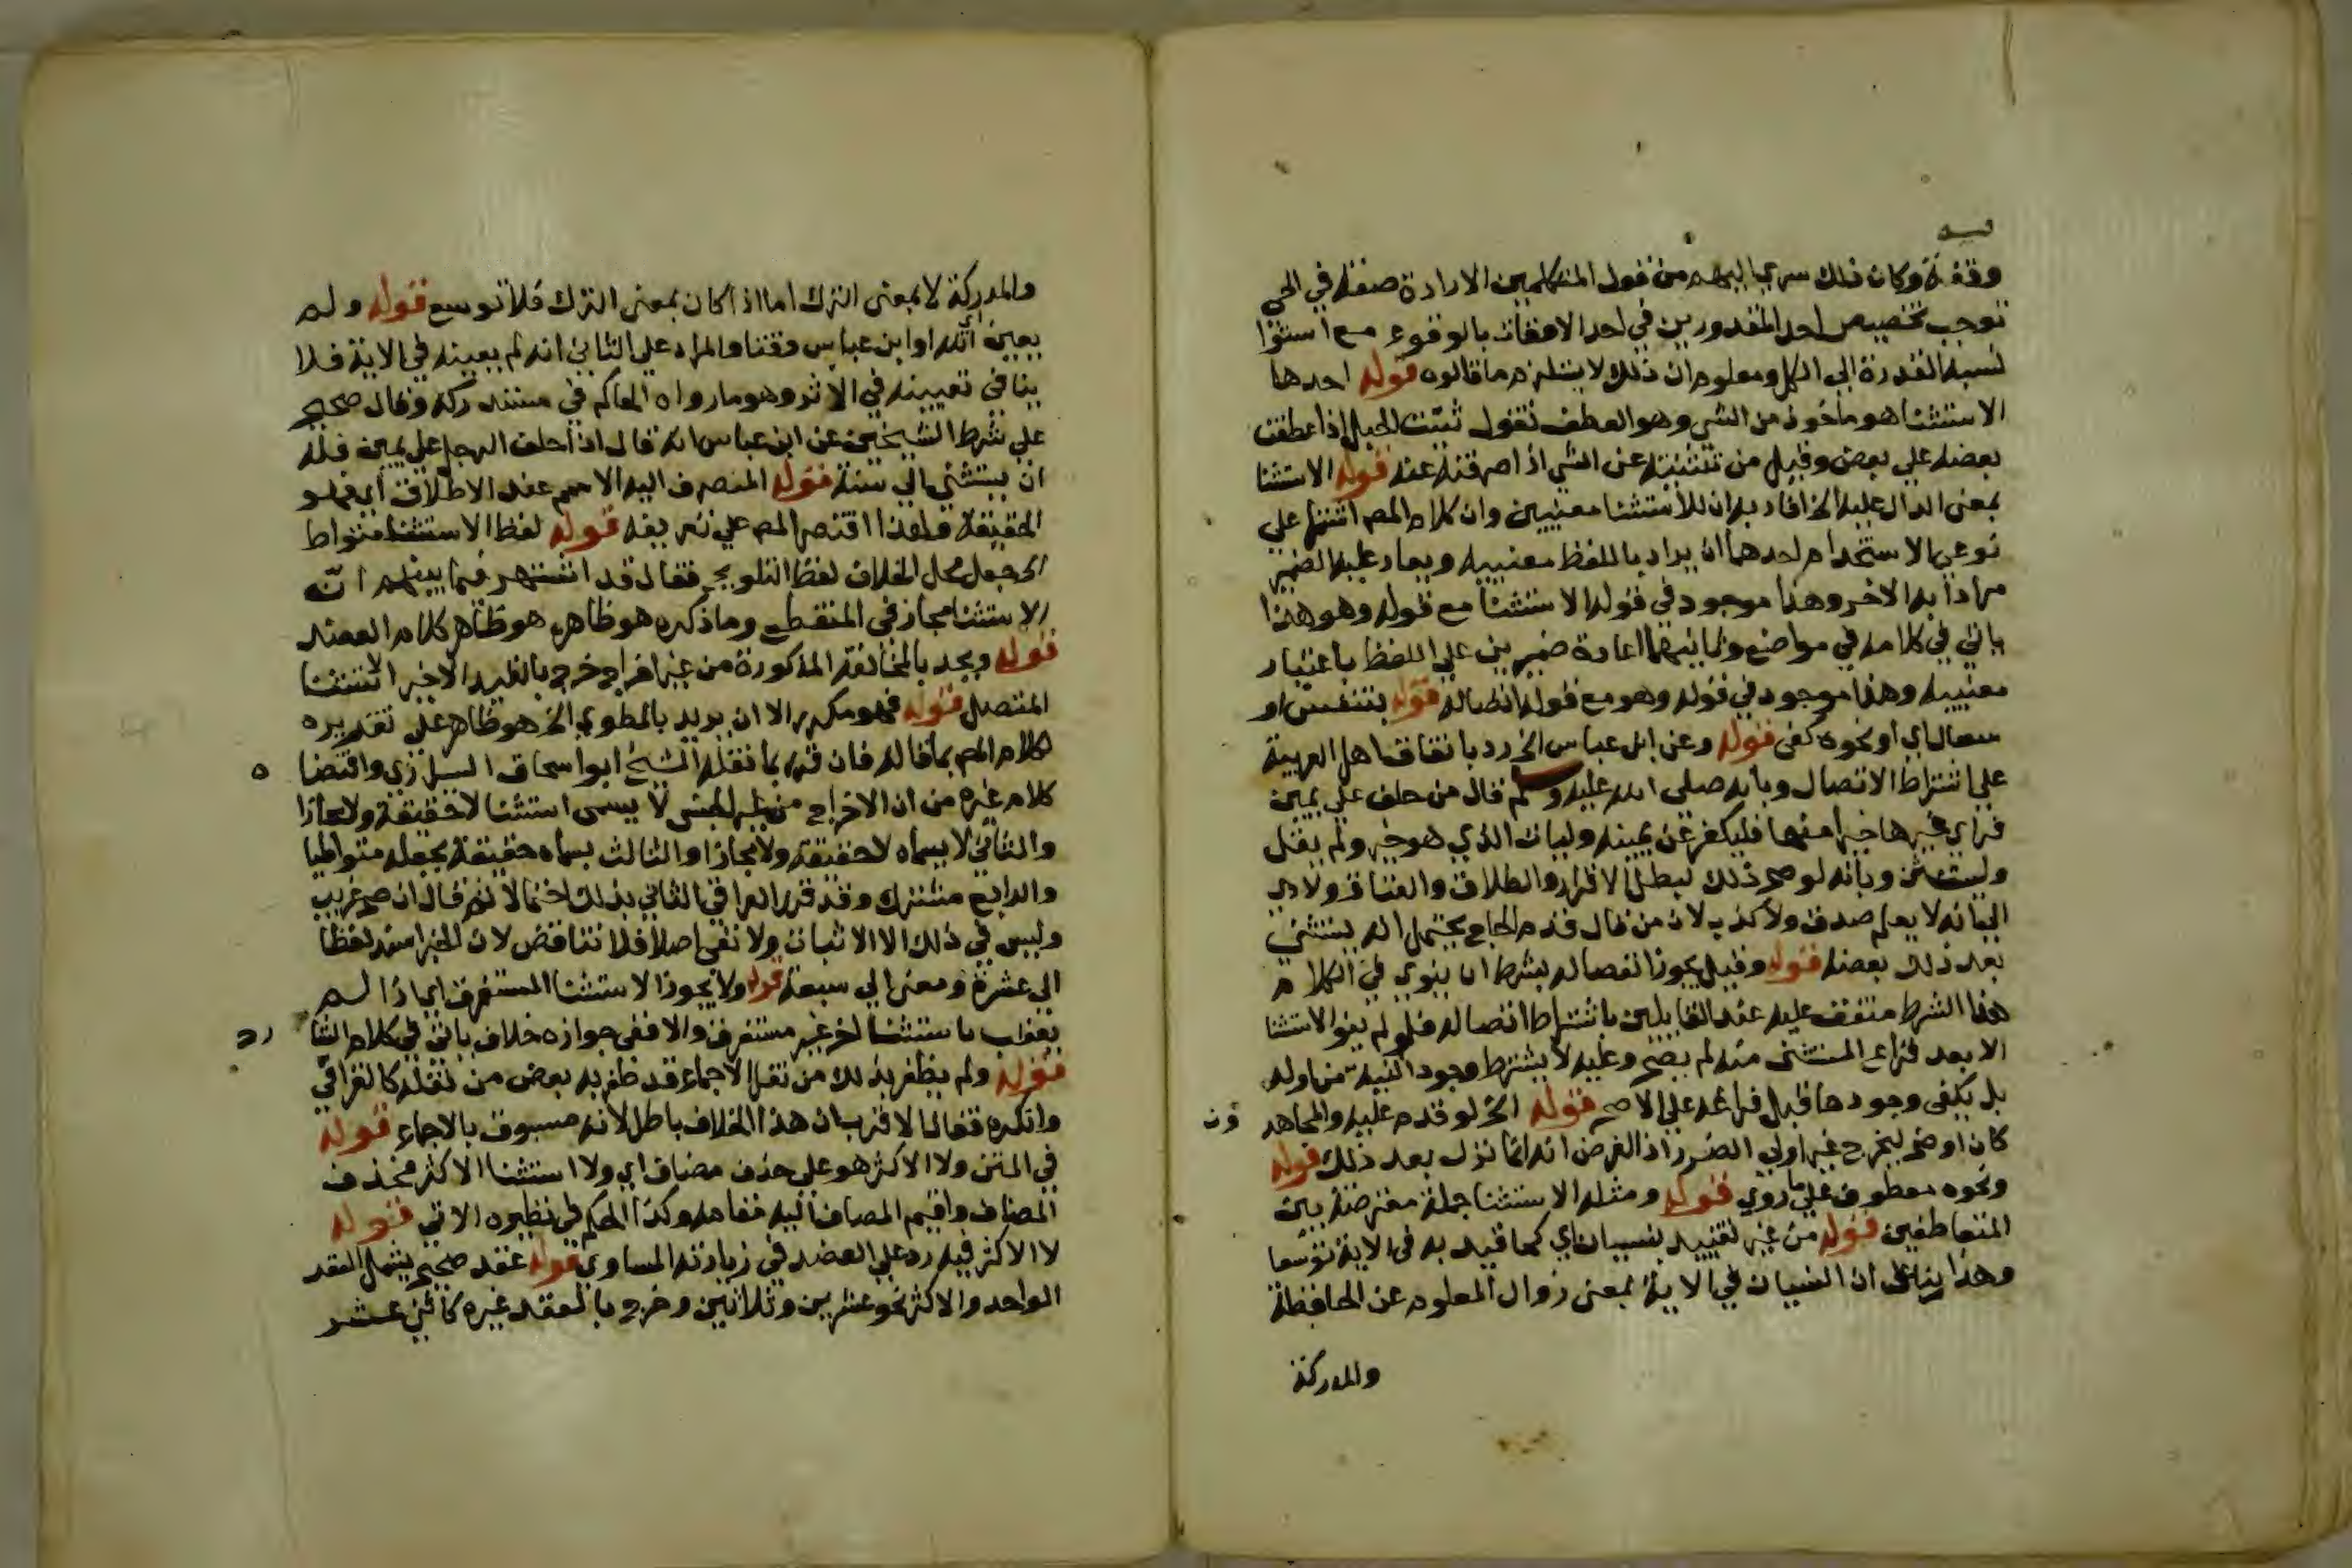 وقفة وكان ذلك سري اليهم من قول المتكلمين الارادة صفة في الحي
توجب تخصيص احد المقدورين في احد الاوقات بالوقوع مع استوا
نسبة القدرة الي الكل ومعلوم ان ذلك لا يستلزم ما قالوه قوله احدها
الاستثنا هو ماخوذ من الثني وهو العطف تقول ثنيت الحبل اذا عطفت
بعضه علي بعض وقيل من تثنيته عن الشي اذا صرفته عنه قوله الاستثنا
بمعني الدال عليه الخ افاد به ان للاستثنا معنيين وان كلام المص اشتمل علي
نوعي الاستخدام احدهما ان يراد باللفظ معنييه ويعاد عليه الضمير
مرادا به الاخر وهذا موجود في قوله الاستثنا مع قوله وهو هذا
ياتي في كلامه في مواضع وثانيهما اعادة ضميرين علي اللفظ باعتبار
معنييه وهذا موجود في قوله وهو مع قوله اتصاله قوله بتنفس او
سعال اي او نحوه كفي قوله وعن ابن عباس الخ رد باتفاق اهل العربية
علي اشتراط الاتصال وبانه صلي الله عليه وسلم قال من حلف علي يمين
فراي غيرها خيرا منها فليكفر عن يمينه وليات الذي هو خير ولم يقل
وليستثن وبانه لو صح ذلك لبطل الاقرار والطلاق والعتاق ولادي
الي انه لا يعلم صدق ولا كذب لان من قال قدم الحاج يحتمل انه يستثني
بعد ذلك بعضه قوله وقيل يجوز انفصاله بشرط ان ينوي في الكلام
هذا الشرط متفق عليه عند القايلين باشتراط اتصاله فلو لم ينو الاستثنا
الا بعد فراغ المستثني منه لم يصح وعليه لا يشترط وجود النية من اوله
بل يكفي وجودها قبل فراغه علي الاصح قوله الخ لو قدم عليه والمجاهد ون
كان اوضح ليخرج غير اولي الضرر اذ الغرض انه انما نزل بعد ذلك قوله
ونحوه معطوف علي ما روي قوله ومثله الاستثنا جملة معترضة بين
المتعاطفين قوله من غير تقييد بنسيان اي كما قيد به في الاية توسعا
وهذا بنا علي ان النسيان في الاية بمعني زوال المعلوم عن الحافظة
والمدركة
والمدركة لا بمعني الترك اما اذا كان بمعني الترك فلا توسع قوله ولم
يعينه اي الله او ابن عباس وقتا والمراد علي الثاني انه لم يعينه في الاية فلا
ينافي تعيينه في الاثر وهو ما رواه الحاكم في مستدركه وقال صحيح
علي شرط الشيخين عن ابن عباس انه قال اذا حلف الرجل علي يمين فله
ان يستثني الي سنة قوله المنصرف اليه الاسم عند الاطلاق اي فهو
الحقيقة ولهذا اقتصر المص علي تعريفه قوله لفظ الاستثنا متواط
الخ جعل محل الخلاف لفظ التلويح فقال قد اشتهر فيما بينهم ان
الاستثنا مجاز في المنقطع وما ذكره هو ظاهر هو ظاهر كلام العضد
قوله ويحد بالمخالفة المذكورة من غير اخراج خرج بالقيد الاخير الاستثنا
المتصل قوله فهو مكرر الا ان يريد بالمطوي الخ هو ظاهر علي تقديره
لكلام المص بما قاله فان قدر بما نقله الشيخ ابو اسحاق الشيرازي واقتضا ه
كلام غيره من ان الاخراج من غير الجنس لا يسمي استثنا لا حقيقة ولا مجازا
والثاني لا يسماه لا حقيقة ولا مجازا والثالث يسماه حقيقة بجعله متواطيا
والرابع مشترك وقد قرر العراقي الثاني بذلك احتمالا ثم قال ان صح غريب
وليس في ذلك الا الاثبات ولا نفي اصلا فلا تناقض لان الخبر اسند لفظا
الي عشرة ومعني الي سبعة قوله ولا يجوز الاستثنا المستغرق اي اذا لم
يعقب باستثنا اخر غير مستغرق والا ففي جوازه خلاف ياتي في كلام الشا رح
قوله ولم يظفر بذلك من نقل الاجماع قد ظفر به بعض من نقله كالقرافي
وانكره فقال الاقرب ان هذا الخلاف باطل لانه مسبوق بالاجماع قوله
في المتن ولا الاكثر هو علي حذف مضاف اي ولا استثنا الاكثر فحذف
المضاف واقيم المضاف اليه مقامه وكذا الحكم في نظيره الاتي قوله
لا الاكثر فيه رد علي العضد في زيادته المساوي قوله عقد صحيح يشمل العقد
الواحد والاكثر نحو عشرين وثلاثين وخرج بالعقد غيره كاثني عشر